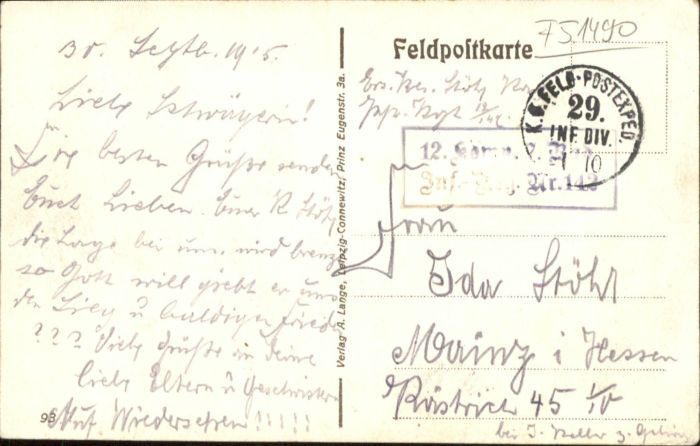 30. Septb. 1915.
Liebe Schwägerin!
Die besten Grüße sendet
Euch Lieben. Euer K Stöhr
die Lage bei uns. wird brenzl
so Gott will giebt er uns
den Sieg u baldigen Frieden
??? Viele Grüße an Deine
liebe Eltern u Geschwistern
Auf Wiedersehen!!!!!
98
Verlag A. Lange, Leipzig-Connewitz, Prinz Eugenstr. 3a.
FS1490
Feldpostkarte
Ers. Res. Stöhr
K. D. FELD-POSTEXPED.
29.
INF. DIV.
12. Komp.
Inf.-Reg. Nr. 142
Frau
Ida Stöhr
Mainz i Hessen
Kästrich 45 IV
bei J.